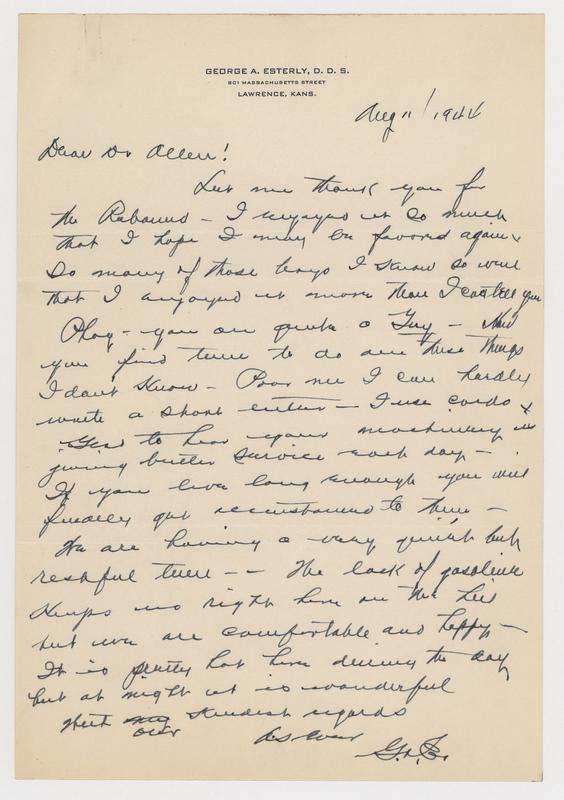 GEORGE A. ESTERLY, D. D. S.
801 MASSACHUSETTS STREET
LAWRENCE, KANS.
Aug 11/1944
Dear Dr Allen!
Let me thank you for
the Rebound – I enjoyed it so much
that I hope I may be favored again.
So many of those boys I know so well
that I enjoyed it more than I can tell you
Phog – you are quite a Guy – How
you find time to do all these things
I don't know – Poor me I can hardly
write a short letter – I use cards
to hear your machinery is
giving better service each day –
If you live long enough you will
finally get accustomed to them –
We are having a very quiet but
restful time – – The lack of gasoline
Keeps us right here on the hill
but we are comfortable and happy –
It is pretty hot here during the day
but at night it is wonderful
With my kindest regards
our
As ever
G.A.E.